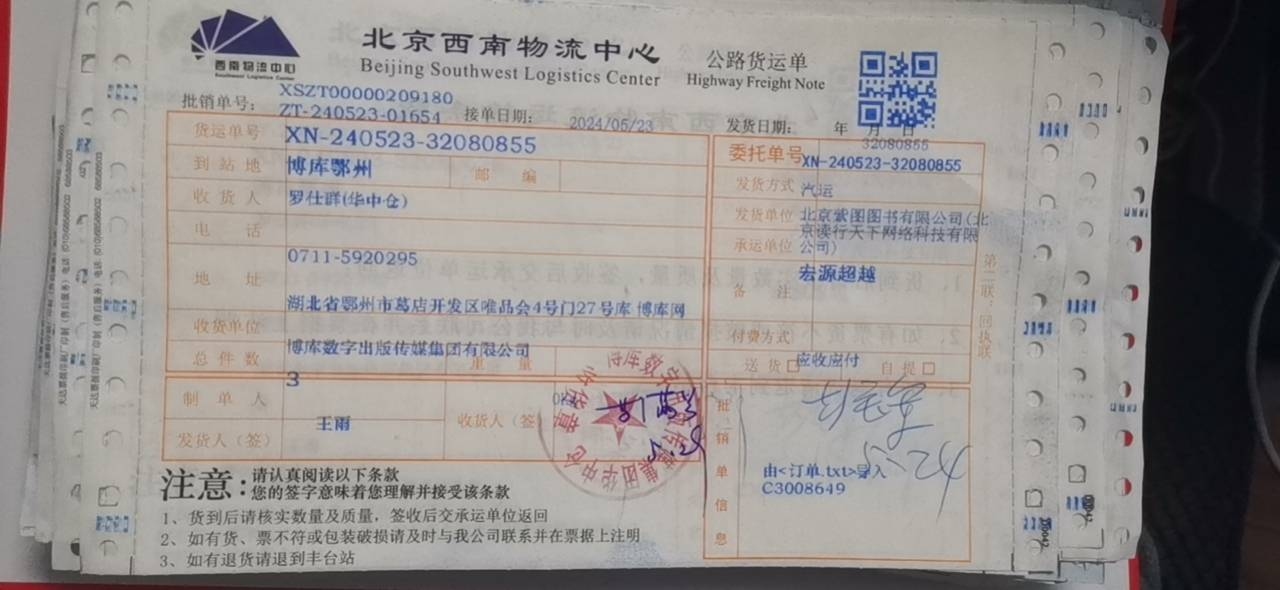 西南物流中心
Southwest Logistics Center
北京西南物流中心
Beijing Southwest Logistics Center
公路货运单
Highway Freight Note
批销单号:
XSZT00000209180
ZT-240523-01654
接单日期: 2024/05/23
发货日期: 年 月 日
32080855
货运单号 XN-240523-32080855
到站地 博库鄂州 邮 编
收货人 罗仕群(华中仓)
电 话
0711-5920295
地 址
湖北省鄂州市葛店开发区唯品会4号门27号库 博库网
收货单位
博库数字出版传媒集团有限公司
总件数 重 量
3
制单人
王雨
收货人(签)
发货人(签)
委托单号 XN-240523-32080855
发货方式 汽运
发货单位 北京紫图图书有限公司(北
京读行天下网络科技有限
承运单位 公司)
宏源超越
备 注
付费方式
应收应付
送货□ 自提□
批销单信息
由<订单.txt>导入
C3008649
第二联:回执联
注意:
请认真阅读以下条款
您的签字意味着您理解并接受该条款
1、货到后请核实数量及质量,签收后交承运单位返回
2、如有货、票不符或包装破损请及时与我公司联系并在票据上注明
3、如有退货请退到丰台站